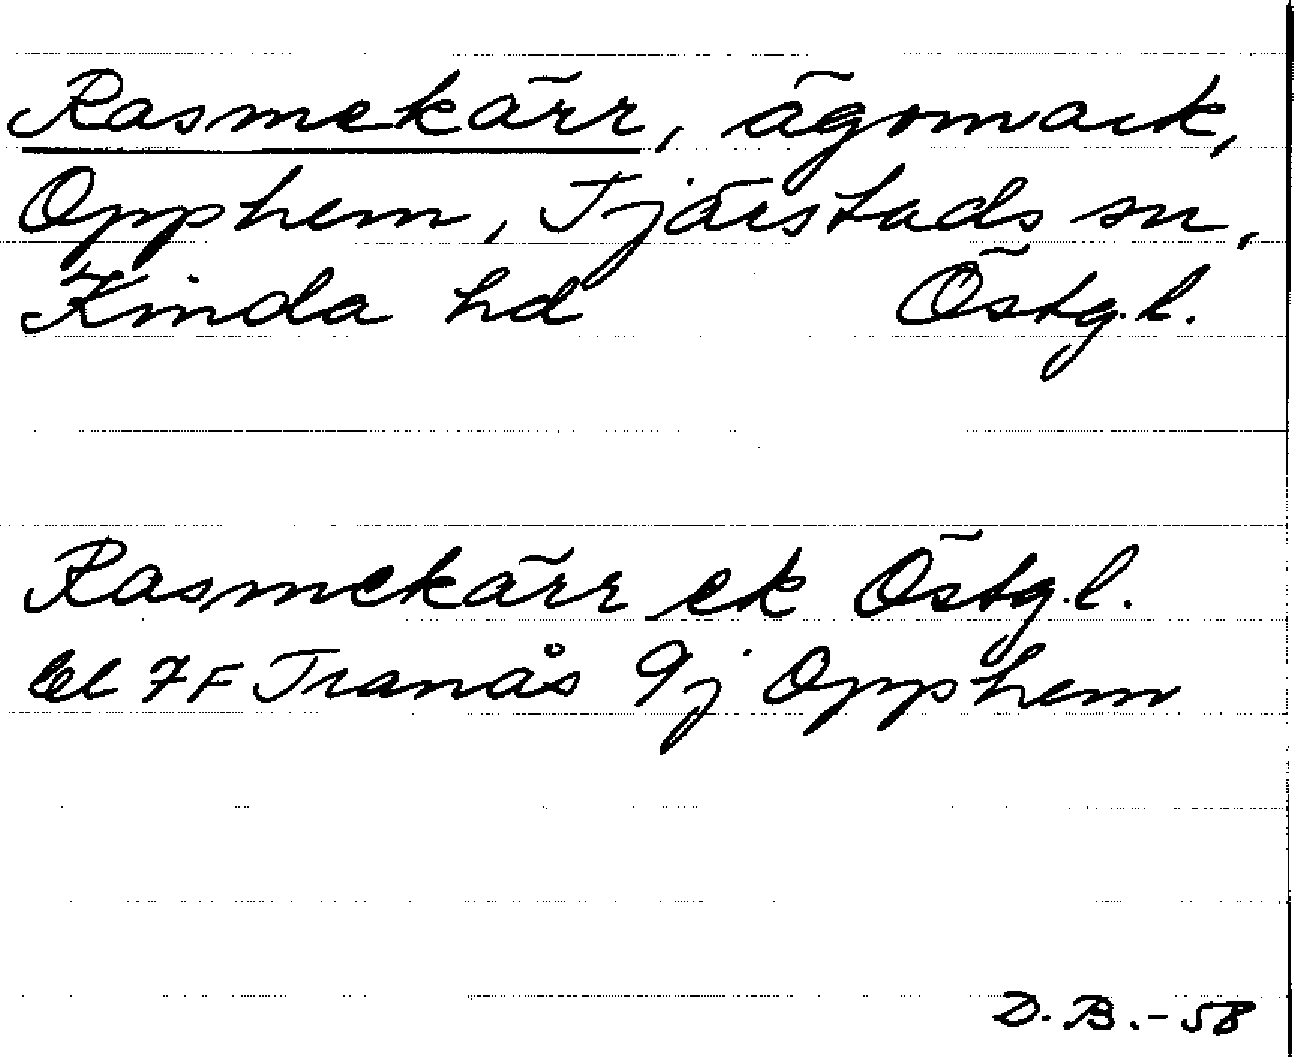 Rasmekärr, ägomark,
Opphem, Tjärstads sn,
Kinda hd Östg.l.
Rasmekärr ek Östg.l.
bl 7F Tranås 9j Opphem
D.B.-58